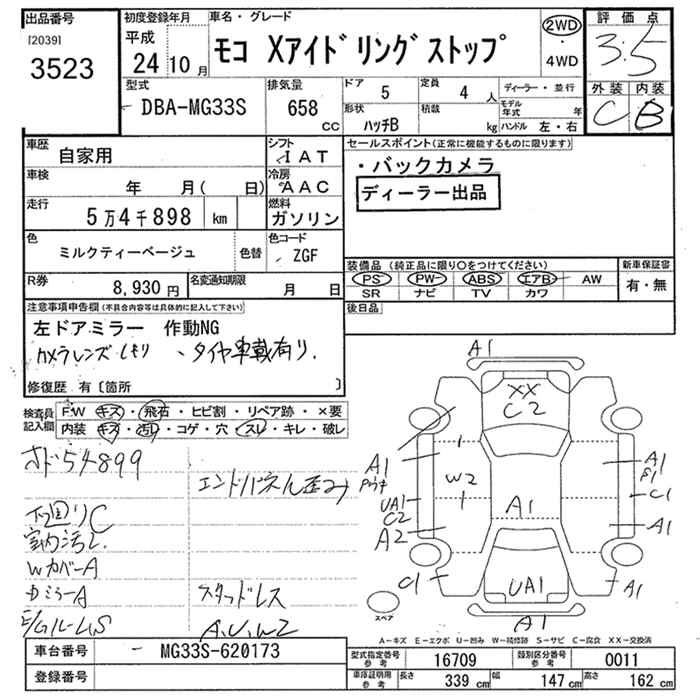 出品番号
[2039]
3523
初度登録年月
平成
24 10 月
車名・グレード
モコ Xアイドリングストップ
2WD
・
4WD
評価点
3.5
外装 内装
C B
型式
DBA-MG33S
排気量
658 cc
ドア
5
定員
4 人
形状
ハッチB
積載
kg
ディーラー・並行
モデル年式 年
ハンドル 左・右
車歴
自家用
シフト
IAT
車検
年 月( 日)
冷房
AAC
走行
5万4千898 km
燃料
ガソリン
色
ミルクティーベージュ
色替
色コード
ZGF
R券
8,930円
名変通知期限
月 日
セールスポイント(正常に機能するものに限ります)
・バックカメラ
ディーラー出品
装備品 (純正品に限り○をつけてください)
PS PW ABS エアB AW
SR ナビ TV カワ
新車保証書
有・無
後日品
注意事項申告欄(不具合内容等は具体的に記入して下さい)
左ドアミラー 作動NG
カメラレンズくもり 、タイヤ車載有り.
修復歴 有〔箇所 〕
検査員記入欄
F.W キズ・飛石・ヒビ割・リペア跡・×要
内装 キズ・汚レ・コゲ・穴・スレ・キレ・破レ
オド54899
下回りC
室内汚レ
WカバーA
エンドパネル歪み
スタッドレス
A.U.W2
A1
XX
C2
A1
W2
UA1
C2
A2
C1
A1
A1
C1
A1
A1
UA1
A1
スペア
A-キズ E-エクボ U-凹み W-補修跡 S-サビ C-腐食 XX-交換済
車台番号
- MG33S-620173
登録番号
型式指定番号 参考
16709
類別区分番号 参考
0011
車庫証明用 参考
長さ 339 cm
幅 147 cm
高さ 162 cm